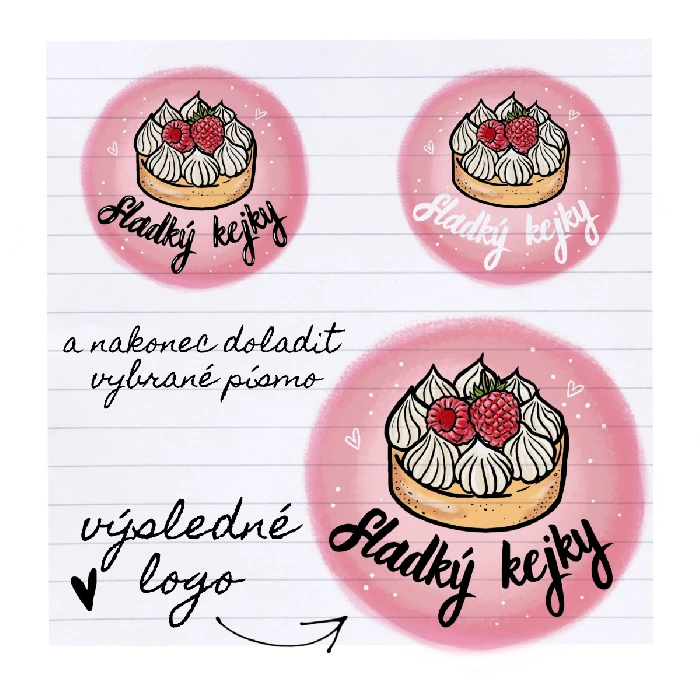 Sladký kejky
Sladký kejky
a nakonec doladit
vybrané písmo
výsledné
logo
Sladký kejky